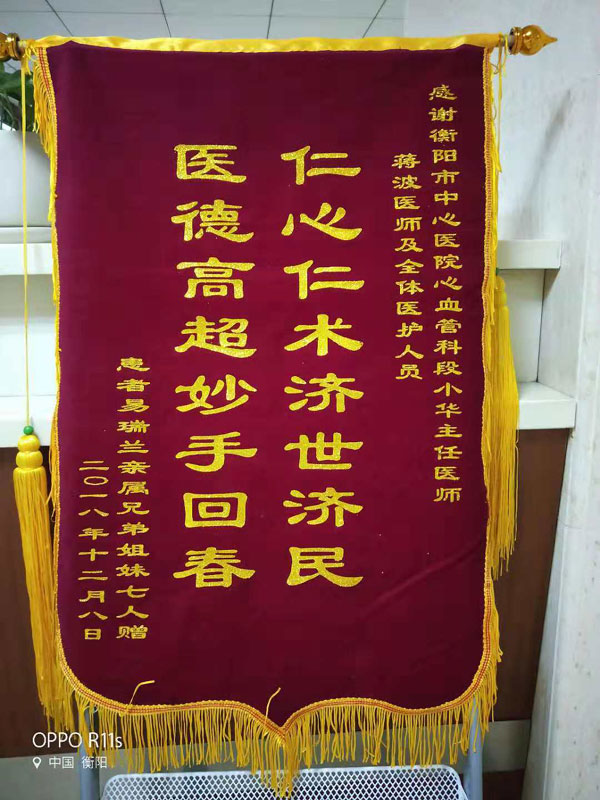 感谢衡阳市中心医院心血管科段小华主任医师
蒋波医师及全体医护人员
仁心仁术济世济民
医德高超妙手回春
患者易瑞兰亲属兄弟姐妹七人赠
二〇一八年十二月八日
OPPO R11s
中国 衡阳